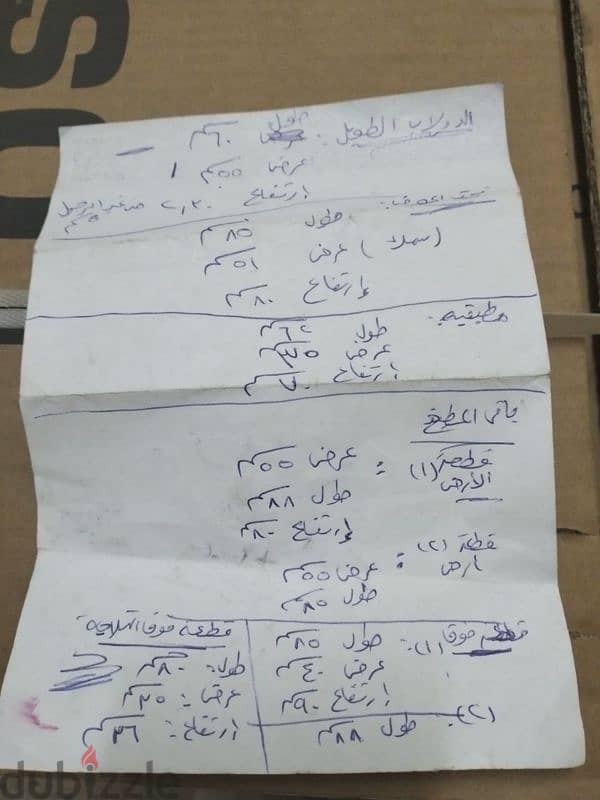 الدولاب الطويل: طول ٦٠سم
عرض ٥٥سم
ارتفاع ٢,٢٠
طول ٨٥سم
عرض ٥١سم
إرتفاع ٨٠سم
مطبقيه:
طول ٦٢سم
عرض ٣٥سم
ارتفاع ٧٠سم
باقى المطبخ
قطعة (١) الأرض: عرض ٥٥سم
طول ٨٨سم
إرتفاع ٨٠سم
قطعة (٢) أرض: عرض ٥٥سم
طول ٨٥سم
فوق (١): طول ٨٥سم
عرض ٤٠سم
ارتفاع ٩٠سم
(٢): طول ٨٨سم
قطعة فوق التلاجة
طول: ٨٠سم
عرض: ٣٥سم
ارتفاع: ٣٦سم
dubizzle